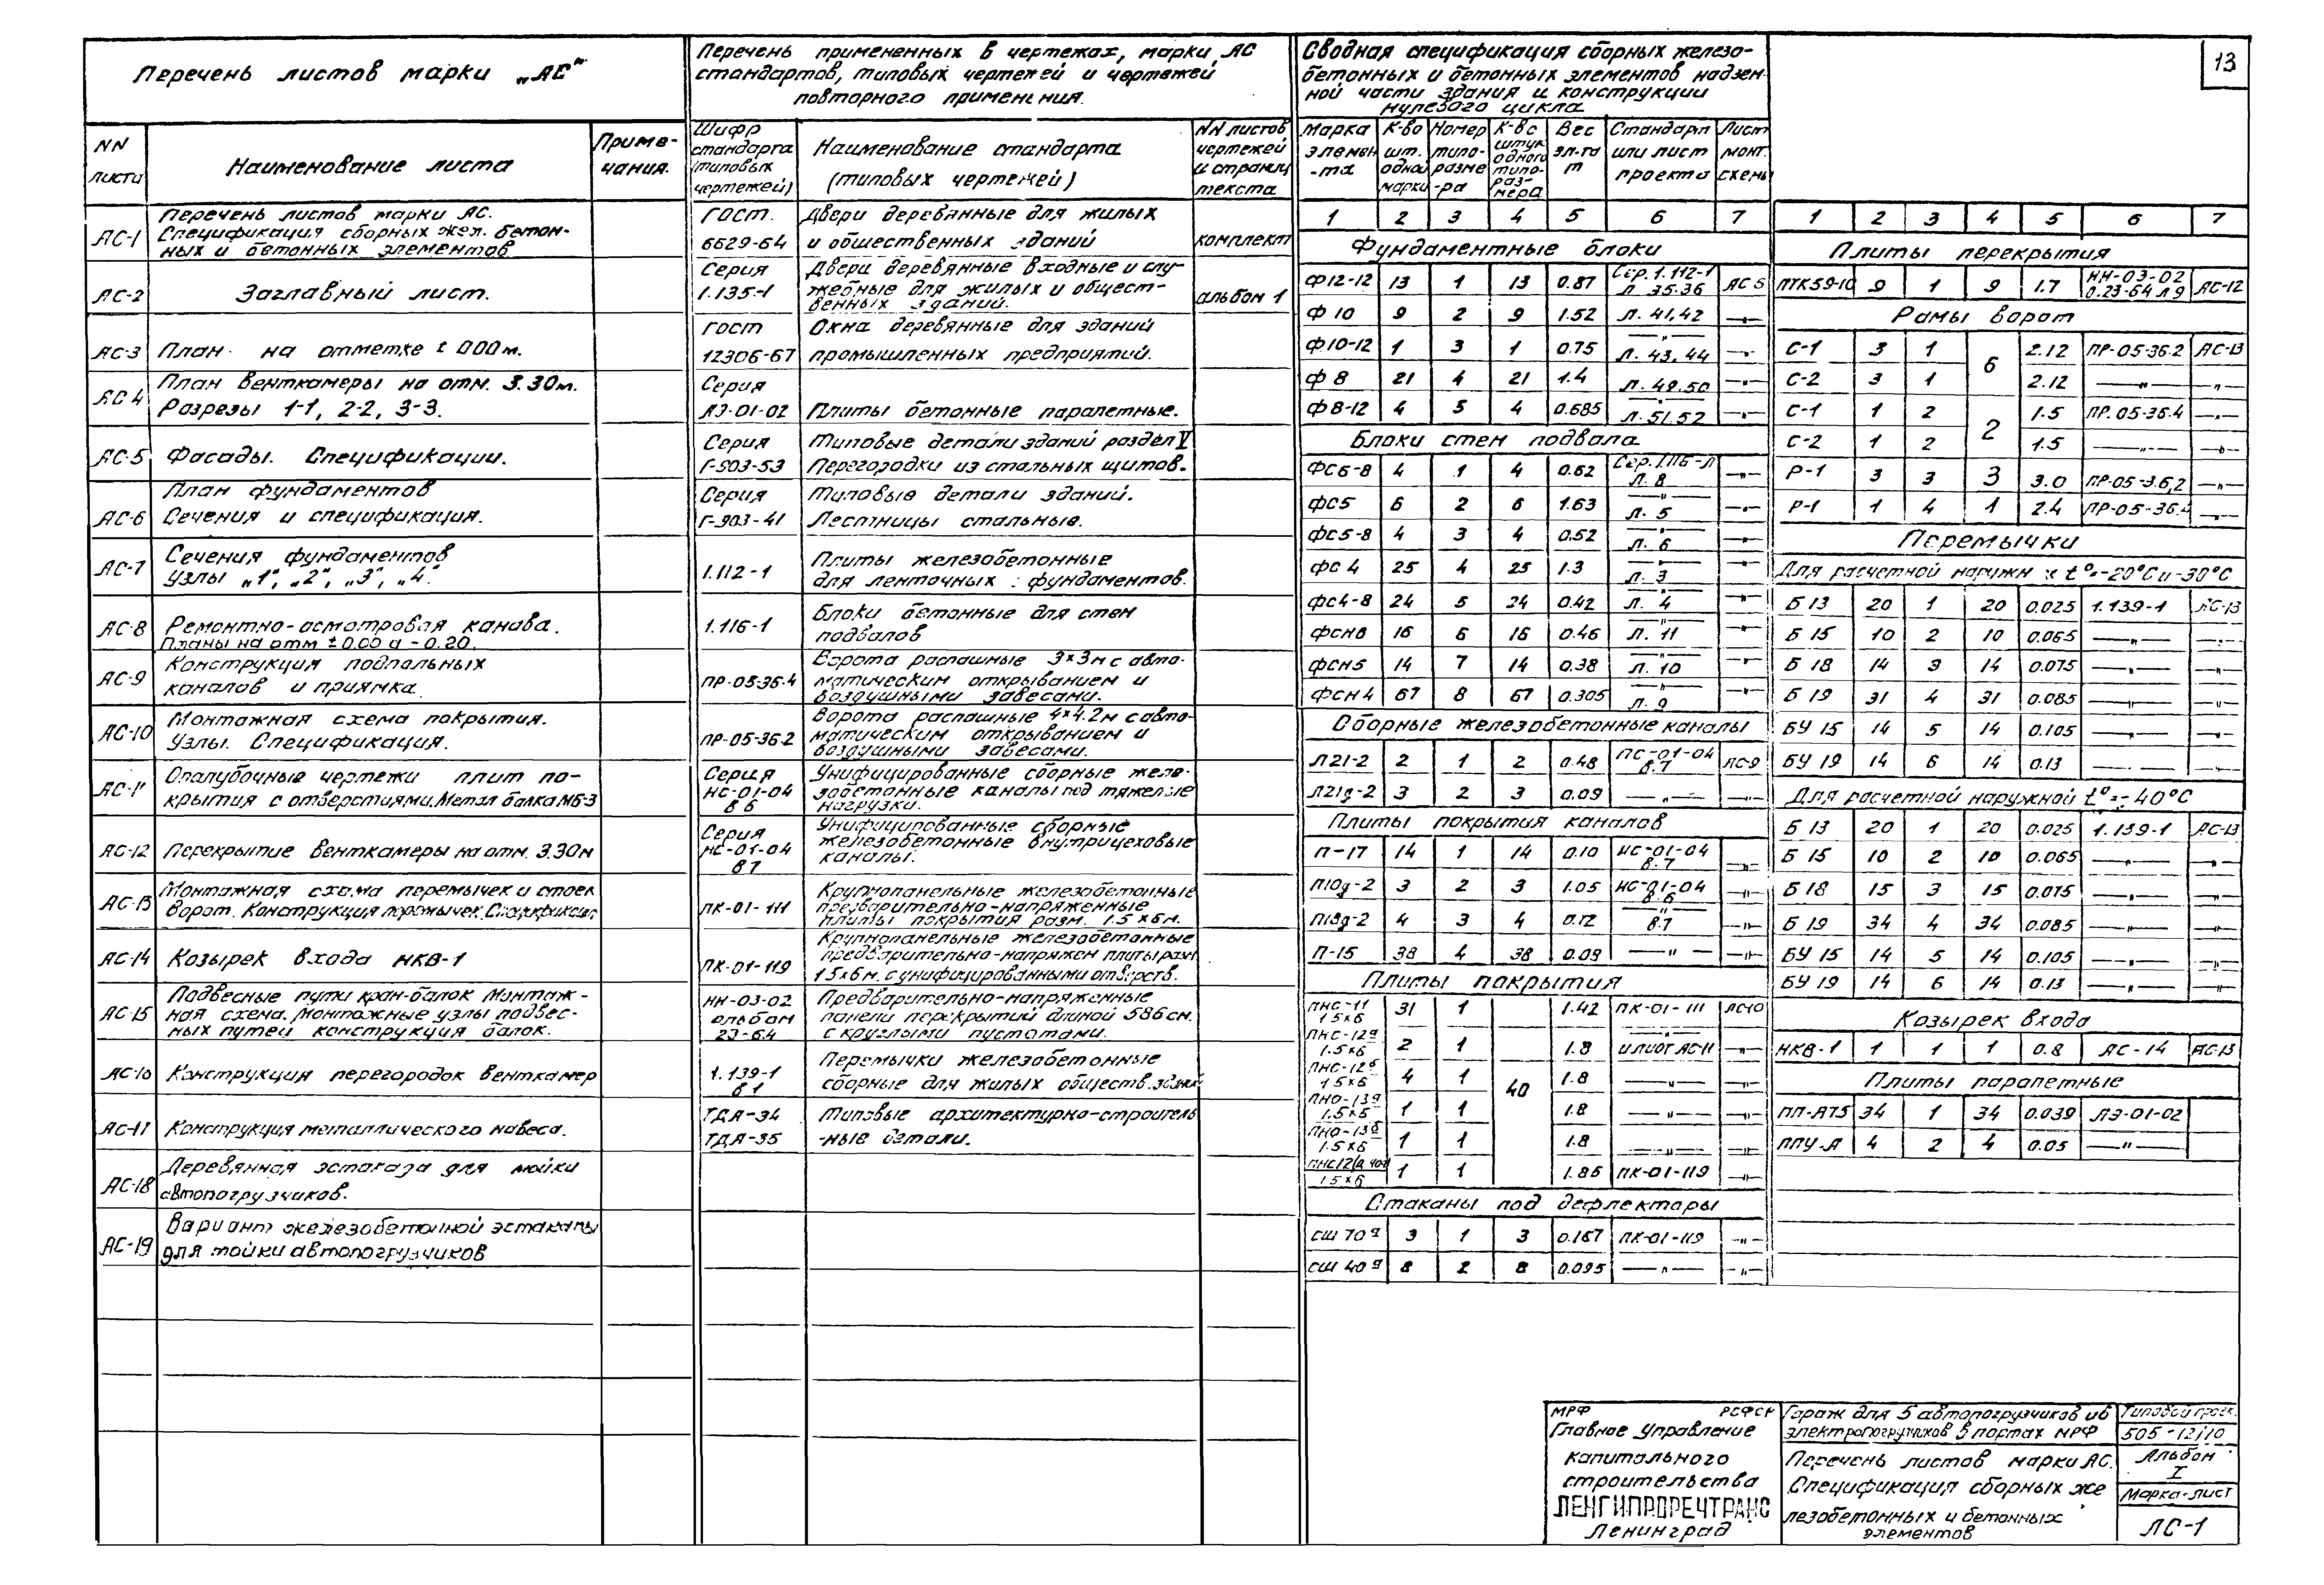 13
Перечень листов марки „АС“
NN листа | Наименование листа | Примечания.
АС-1 | Перечень листов марки АС. Спецификация сборных жел. бетонных и бетонных элементов
АС-2 | Заглавный лист.
АС-3 | План на отметке ± 000 м.
АС 4 | План венткамеры на отм. 3.30м. Разрезы 1-1, 2-2, 3-3.
АС-5 | Фасады. Спецификации.
АС-6 | План фундаментов Сечения и спецификация.
АС-7 | Сечения фундаментов Узлы „1“, „2“, „3“, „4“.
АС-8 | Ремонтно-осмотровая канава. Планы на отм ±0.00 и -0.20.
АС-9 | Конструкция подпольных каналов и приямка.
АС-10 | Монтажная схема покрытия. Узлы. Спецификация.
АС-11 | Опалубочные чертежи плит покрытия с отверстиями. Метал балка МБ-3
АС-12 | Перекрытие венткамеры на отм. 3.30м
АС-13 | Монтажная схема перемычек и стоек ворот. Конструкция перемычек. Спецификация
АС-14 | Козырек входа НКВ-1
АС-15 | Подвесные пути кран-балок Монтажная схема. Монтажные узлы подвесных путей конструкция балок.
АС-16 | Конструкция перегородок венткамер
АС-17 | Конструкция металлического навеса.
АС-18 | Деревянная эстакада для мойки автопогрузчиков.
АС-19 | Вариант железобетонной эстакады для мойки автопогрузчиков
Перечень примененных в чертежах, марки АС стандартов, типовых чертежей и чертежей повторного применения.
Шифр стандарта (типовых чертежей) | Наименование стандарта (типовых чертежей) | NN листов чертежей и страниц текста
ГОСТ. 6629-64 | Двери деревянные для жилых и общественных зданий | комплект
Серия 1.135-1 | Двери деревянные входные и служебные для жилых и общественных зданий. | альбом 1
ГОСТ 12306-67 | Окна деревянные для зданий промышленных предприятий.
Серия АЭ-01-02 | Плиты бетонные парапетные.
Серия Г-903-53 | Типовые детали зданий раздел V Перегородки из стальных щитов.
Серия Г-903-41 | Типовые детали зданий. Лестницы стальные.
1.112-1 | Плиты железобетонные для ленточных фундаментов.
1.116-1 | Блоки бетонные для стен подвалов
ПР-05-36.4 | Ворота распашные 3×3м с автоматическим открыванием и воздушными завесами.
ПР-05-36.2 | Ворота распашные 4×4.2м с автоматическим открыванием и воздушными завесами.
Серия НС-01-04 в 6 | Унифицированные сборные железобетонные каналы под тяжелые нагрузки.
Серия НС-01-04 в 7 | Унифицированные сборные железобетонные внутрицеховые каналы.
ПК-01-111 | Крупнопанельные железобетонные предварительно-напряженные плиты покрытия разм. 1.5×6м.
ПК-01-119 | Крупнопанельные железобетонные предварительно-напряжен плиты разм 1.5×6м. с унифицированными отверств.
НН-03-02 альбом 23-64 | Предварительно-напряженные панели перекрытий длиной 586см. с круглыми пустотами.
1.139-1 в 1 | Перемычки железобетонные сборные для жилых обществ. зданий
ТДА-34 ТДА-35 | Типовые архитектурно-строительные детали.
Сводная спецификация сборных железобетонных и бетонных элементов надземной части здания и конструкции нулевого цикла
Марка элемента | К-во шт. одной марки | Номер типоразмера | К-во штук одного типоразмера | Вес эл-та т | Стандарт или лист проекта | Лист монт. схемы
1 | 2 | 3 | 4 | 5 | 6 | 7
Фундаментные блоки
Ф12-12 | 13 | 1 | 13 | 0.87 | Сер. 1.112-1 Л. 35.36 | АС 6
Ф 10 | 9 | 2 | 9 | 1.52 | Л. 41,42 | —„—
Ф10-12 | 1 | 3 | 1 | 0.75 | —„— Л. 43, 44 | —„—
Ф 8 | 21 | 4 | 21 | 1.4 | Л. 49.50 | —„—
Ф8-12 | 4 | 5 | 4 | 0.685 | —„— Л. 51.52 | —„—
Блоки стен подвала
ФС6-8 | 4 | 1 | 4 | 0.62 | Сер. 1.116-1 Л. 8 | —„—
ФС5 | 6 | 2 | 6 | 1.63 | —„— Л. 5 | —„—
ФС5-8 | 4 | 3 | 4 | 0.52 | —„— Л. 6 | —„—
ФС 4 | 25 | 4 | 25 | 1.3 | —„— Л. 3 | —„—
ФС4-8 | 24 | 5 | 24 | 0.42 | —„— Л. 4 | —„—
ФСН6 | 16 | 6 | 16 | 0.46 | —„— Л. 11 | —„—
ФСН5 | 14 | 7 | 14 | 0.38 | —„— Л. 10 | —„—
ФСН 4 | 67 | 8 | 67 | 0.305 | —„— Л. 9 | —„—
Сборные железобетонные каналы
Л21-2 | 2 | 1 | 2 | 0.48 | ПС-01-04 в.7 | АС-9
Л21д-2 | 3 | 2 | 3 | 0.09 | —„— | —„—
Плиты покрытия каналов
П-17 | 14 | 1 | 14 | 0.10 | НС-01-04 в.7 | —„—
П10д-2 | 3 | 2 | 3 | 1.05 | НС-01-04 в.6 | —„—
П18д-2 | 4 | 3 | 4 | 0.12 | —„— в.7 | —„—
П-15 | 38 | 4 | 38 | 0.09 | —„— | —„—
Плиты покрытия
ПНС-11 1.5×6 | 31 | 1 | 40 | 1.42 | ПК-01-111 | АС-10
ПНС-12а 1.5×6 | 2 | 1 | 1.8 | —„— и лист АС-11 | —„—
ПНС-12б 1.5×6 | 4 | 1 | 1.8 | —„— | —„—
ПНО-13а 1.5×6 | 1 | 1 | 1.8 | —„— | —„—
ПНО-13б 1.5×6 | 1 | 1 | 1.8 | —„— | —„—
1.5×6 | 1 | 1 | 1.86 | ПК-01-119 | —„—
Стаканы под дефлекторы
СШ 70а | 3 | 1 | 3 | 0.167 | ПК-01-119 | —„—
СШ 40а | 8 | 2 | 8 | 0.095 | —„— | —„—
1 | 2 | 3 | 4 | 5 | 6 | 7
Плиты перекрытия
ПТК59-10 | 9 | 1 | 9 | 1.7 | НН-03-02 0.23-64 л 9 | АС-12
Рамы ворот
С-1 | 3 | 1 | 6 | 2.12 | ПР-05-36.2 | АС-13
С-2 | 3 | 1 | 2.12 | —„— | „
С-1 | 1 | 2 | 2 | 1.5 | ПР.05-36.4 | —„—
С-2 | 1 | 2 | 1.5 | —„— | —„—
Р-1 | 3 | 3 | 3 | 3.0 | ПР-05-36,2 | —„—
Р-1 | 1 | 4 | 1 | 2.4 | ПР-05-36.4 | —„—
Перемычки
Для расчетной наружн х t°=-20°С и -30°С
Б 13 | 20 | 1 | 20 | 0.025 | 1.139-1 | АС-13
Б 15 | 10 | 2 | 10 | 0.065 | —„— | —„—
Б 18 | 14 | 3 | 14 | 0.075 | —„— | —„—
Б 19 | 31 | 4 | 31 | 0.085 | —„— | —„—
БУ 15 | 14 | 5 | 14 | 0.105 | —„— | —„—
БУ 19 | 14 | 6 | 14 | 0.13 | —„— | —„—
Для расчетной наружной t°=-40°С
Б 13 | 20 | 1 | 20 | 0.025 | 1.139-1 | АС-13
Б 15 | 10 | 2 | 10 | 0.065 | —„— | —„—
Б 18 | 15 | 3 | 15 | 0.075 | —„— | —„—
Б 19 | 34 | 4 | 34 | 0.085 | —„— | —„—
БУ 15 | 14 | 5 | 14 | 0.105 | —„— | —„—
БУ 19 | 14 | 6 | 14 | 0.13 | —„— | —„—
Козырек входа
НКВ-1 | 1 | 1 | 1 | 0.8 | АС-14 | АС13
Плиты парапетные
ПП-АТ5 | 34 | 1 | 34 | 0.039 | АЭ-01-02
ППУ-А | 4 | 2 | 4 | 0.05 | —„—
МРФ РСФСР
Главное Управление
капитального
строительства
ЛЕНГИПРОРЕЧТРАНС
Ленинград
Гараж для 5 автопогрузчиков и 6
электропогрузчиков в портах МРФ
Перечень листов марки АС.
Спецификация сборных же
лезобетонных и бетонных
элементов
Типовой проек.
505-12/70
Альбом
I
Марка-лист
АС-1